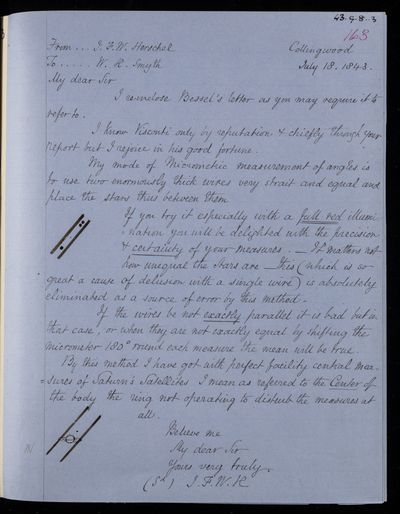 43.9.8..3
163
From .... J. F. W. Herschel
Collingwood
To ..... W. H. Smyth
July 18. 1843.
My dear Sir
I reinclose Bessel's letter as you may require it to
refer to.
I know Visconti only by reputation & chiefly through your
report but I rejoice in his good fortune.
My mode of Micrometric measurement of angles is
to use two enormously thick wires very strait and equal and
place the stars thus between them
If you try it especially with a full red illumi
-nation you will be delighted with the precision
& certainty of your measures. — It matters not
how unequal the stars are — this (which is so
great a cause of delusion with a single wire) is absolutely
eliminated as a source of error by this method -
If the wires be not exactly parallel it is bad but in
that case, or when they are not exactly equal by shifting the
micrometer 180° round each measure the mean will be true.
By this method I have got with perfect facility central mea-
=sures of Saturn's Satellites I mean as referred to the Center of
the body the ring not operating to disturb the measures at
all.
Believe me
My dear Sir
Yours very truly
(Sd) J. F. W. H